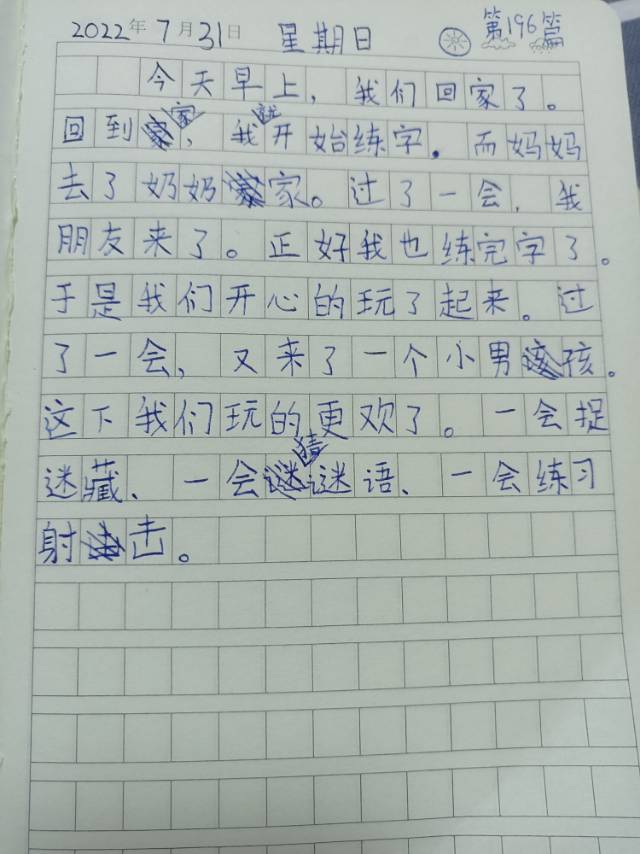 2022年7月31日 星期日 第196篇
今天早上，我们回家了。
回到家，我就开始练字。而妈妈
去了奶奶家。过了一会，我
朋友来了。正好我也练完字了。
于是我们开心的玩了起来。过
了一会，又来了一个小男孩。
这下我们玩的更欢了。一会捉
迷藏、一会猜谜语、一会练习
射击。